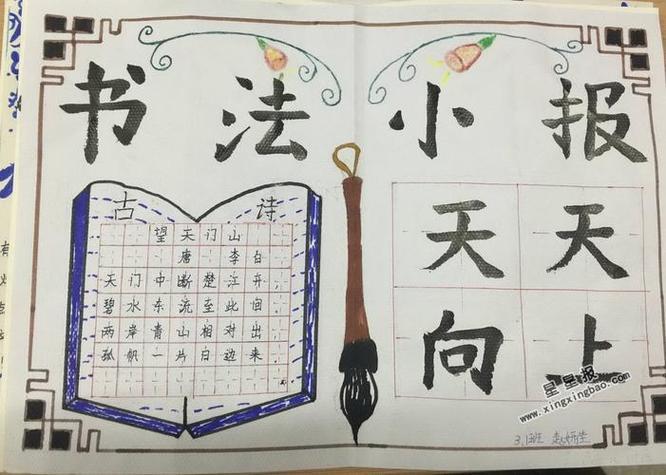 书法小报
古诗
望天门山
唐 李白
天门中断楚江开,
碧水东流至此回,
两岸青山相对出,
孤帆一片白边来。
天天
向上
3.1班
星星报
www.xingxingbao.com